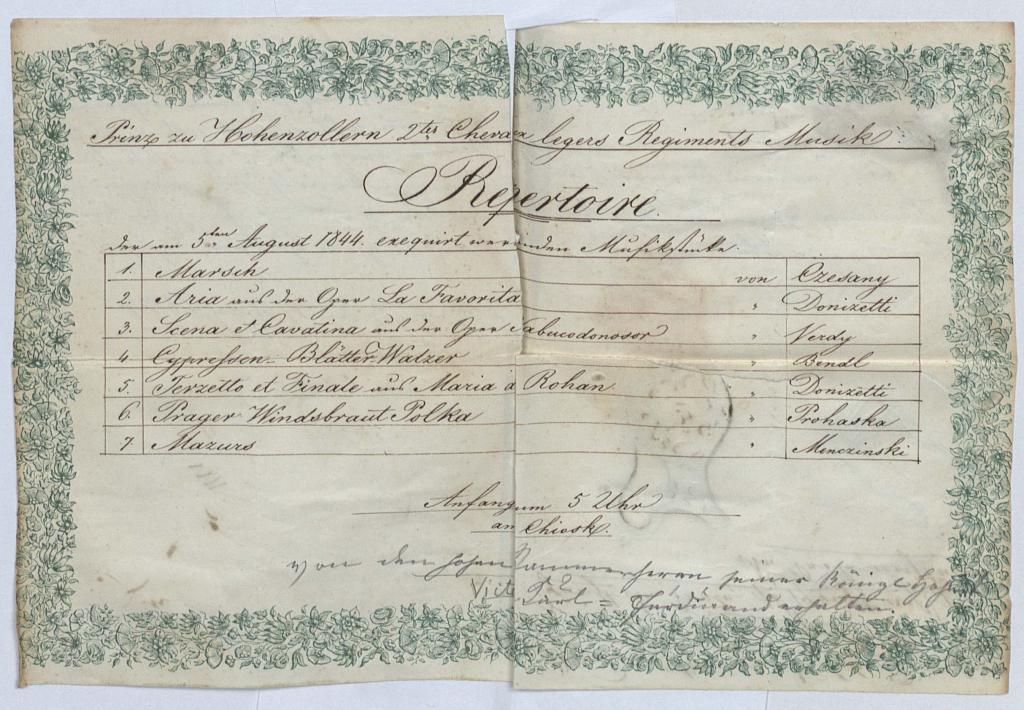 Prinz zu Hohenzollern 2tes Chevaux legers Regiments Musik
Repertoire.
der am 5ten August 1844. exequirt werdenden Musikstücke.
1. Marsch von Czesany
2. Aria aus der Oper La Favorita " Donizetti
3. Scena et Cavatina aus der Oper Nabucodonosor " Verdy
4 Cypressen-Blätter Walzer " Bendl
5 Terzetto et Finale aus Maria d Rohan " Donizetti
6 Prager Windsbraut Polka " Prohaska
7 Mazurs " Menczinski
Anfang um 5 Uhr
am Chiosk.
von dem hohen Kammerherrn seiner Königl
Karl = Ferdinand erhalten.